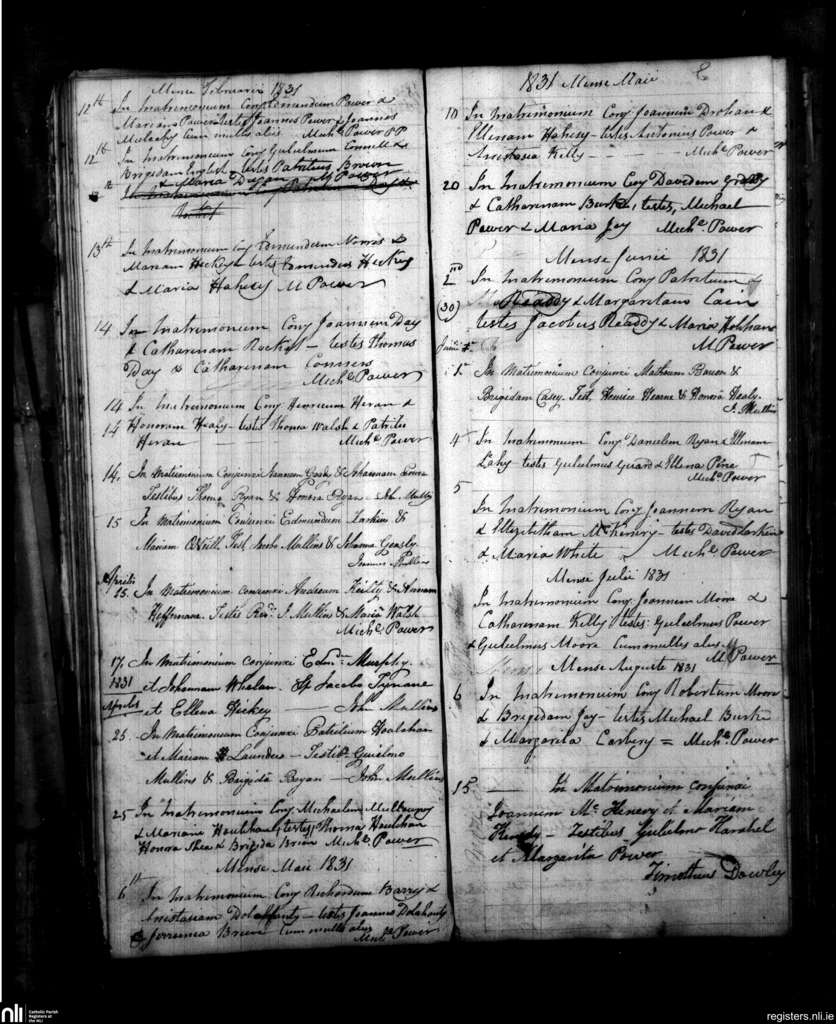 Mense Februarii 1831
12th In Matrimonium Conj Edmundum Power &
Mariam Power testes Joannes Power & Joannes
Mulcahy Cum multis aliis Michl Power PP
12th In Matrimonium Conj Gulielmum Connell &
Brigidam English testes Patritius Brown
& Maria Dugan M Power
13th In Matrimonium Conj Edmundum Norris &
Mariam Hickey testes Edmundus Hickey
& Maria Hahesy M Power
14 In Matrimonium Conj Joannem Day
& Catharenam Rocket — testes Thomas
Day & Catharenam Connors
Michl Power
14 In Matrimonium Conj Henricum Heran &
14 Honoram Healy — testes Thoma Walsh & Patritio
Heran — Michl Power
14, In Matrimonium Conjunxi &amp; Johannam
Testibus Thoma Ryan & Honora Ryan — Joh. Mullins
15 In Matrimonium Conjunxi Edmundum Larkin &
Mariam O'Neill. Test. Jacobo Mullins & Johanna
Mullins
Aprilis
15. In Matrimonium conjunxi Andream Keilly & Annam
Heffernan. Testes Revd. J. Mullins & Maria Walsh
Michl Power
17. In Matrimonium conjunxi Edmd. Murphy.
1831 et Johannam Whelan. Tt Jacobo
Aprilis et Ellena Hickey — John Mullins
25. In Matrimonium Conjunxi Patritium Houlahan
et Mariam Launders — Testibs. Guielmo
Mullins & Brigida Bryan — John Mullins
25 In Matrimonium Conj Michaelem
& Mariam Houlihan, testes, Thoma Houlihan
Honora Shea & Brigida Brien Michl Power
Mense Maii 1831
6th In Matrimonium Conj Richardum Barry &
Anistasiam Dolahunty — testes Joannes Dolahunty
& Brien Cum multis aliis
Michl Power
1831 Mense Maii
10 In Matrimonium Conj Joannem Drohan &
Ellenam Hahesy — testes Antonius Power &
Anistasia Kelly — — — Michl Power
20 In Matrimonium Conj Davidem Grady
& Catharenam Burke, testes, Michael
Power & Maria Joy Michl Power
Mense Junii 1831
2nd In Matrimonium Conj Patritium
(30) Readdy & Margaritam Cain
testes Jacobus Readdy & Maria Holihan
M Power
5. In Matrimonium Conjunxi Matheum Bowen &
Brigidam Casey. Test. Henrico Hearne & Honora Healy.
J. Mullins
4 In Matrimonium Conj Danielem Ryan & Ellenam
Lahy testes Gulielmus Guard & Ellena Pine
Michl Power
5
In Matrimonium Conj Joannem Ryan
& Elizabetham McKeniry — testes David Larkin
& Maria White — Michl Power
Mense Julii 1831
In Matrimonium Conj Joannem Moore &
Catharenam Kelly testes: Gulielmus Power
& Gulielmus Moore Cum multis aliis
M Power
Mense Auguste 1831
6 In Matrimonium Conj Robertum Moore
& Brigedam Joy — testes Michael Burke
& Margarita Carbery = Michl Power
15 — In Matrimonium conjunxi
Joannem Mc Henery et Mariam
— Testibus Gulielmo
et Margarita Power
Timotheus Dowley
nli
Catholic Parish
Registers at
the NLI
registers.nli.ie